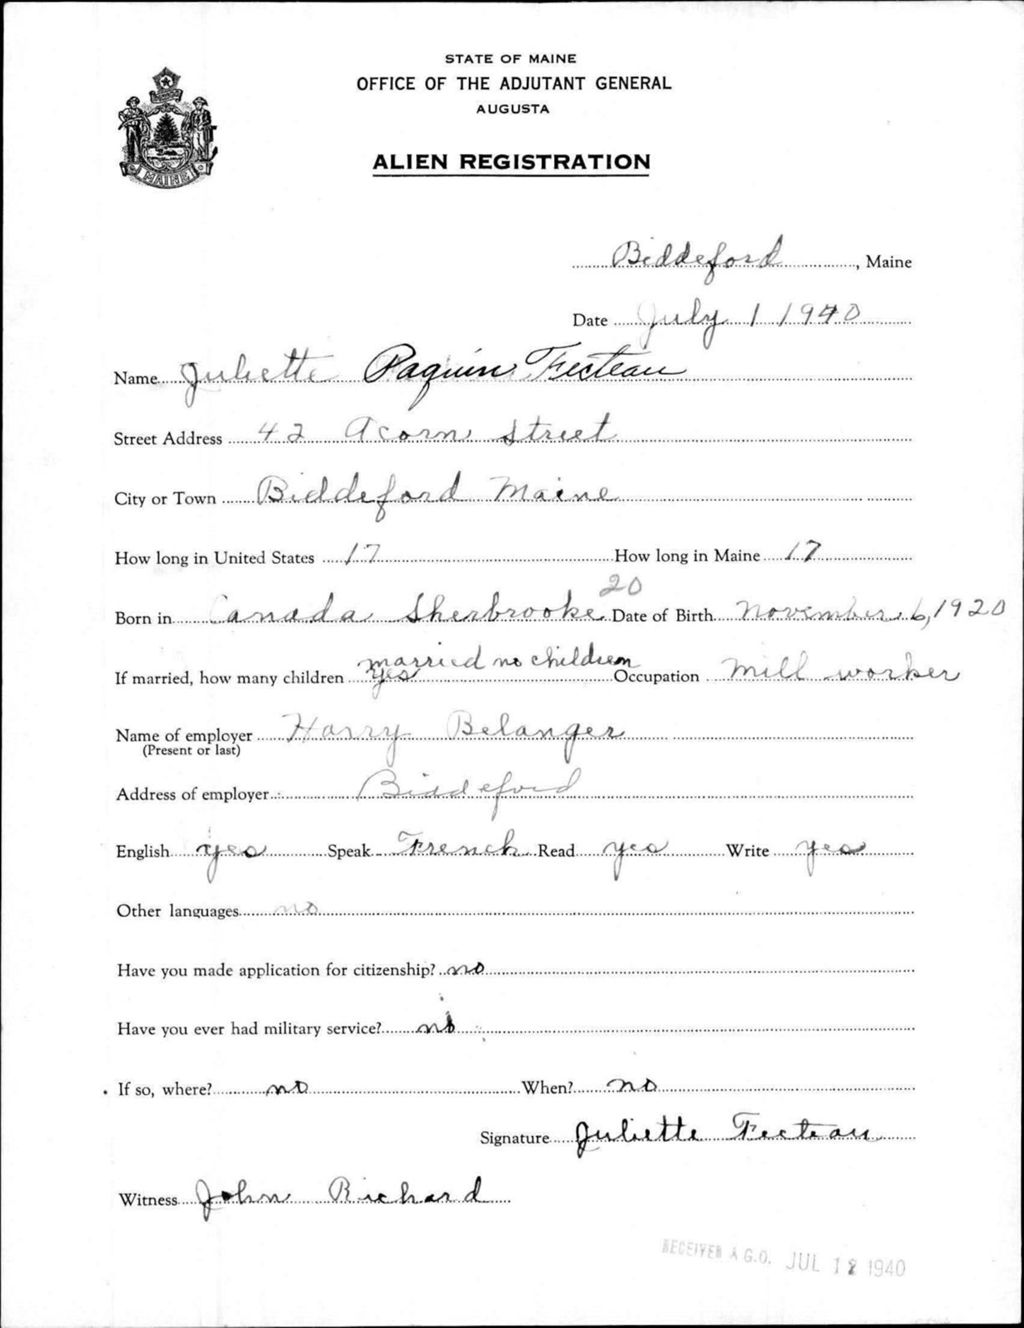 STATE OF MAINE
OFFICE OF THE ADJUTANT GENERAL
AUGUSTA
ALIEN REGISTRATION
MAINE
Biddeford, Maine
Date July 1 1940
Name Juliette Paquin Fecteau
Street Address 42 Acorn Street
City or Town Biddeford Maine
How long in United States 17 How long in Maine 17
20
Born in Canada Sherbrooke Date of Birth November 6, 1920
married no children
If married, how many children yes Occupation Mill worker
Name of employer Harry Belanger
(Present or last)
Address of employer Biddeford
English yes Speak French Read yes Write yes
Other languages no
Have you made application for citizenship? no
Have you ever had military service? no
If so, where? no When? no
Signature Juliette Fecteau
Witness John Richard
RECEIVED A.G.O. JUL 12 1940